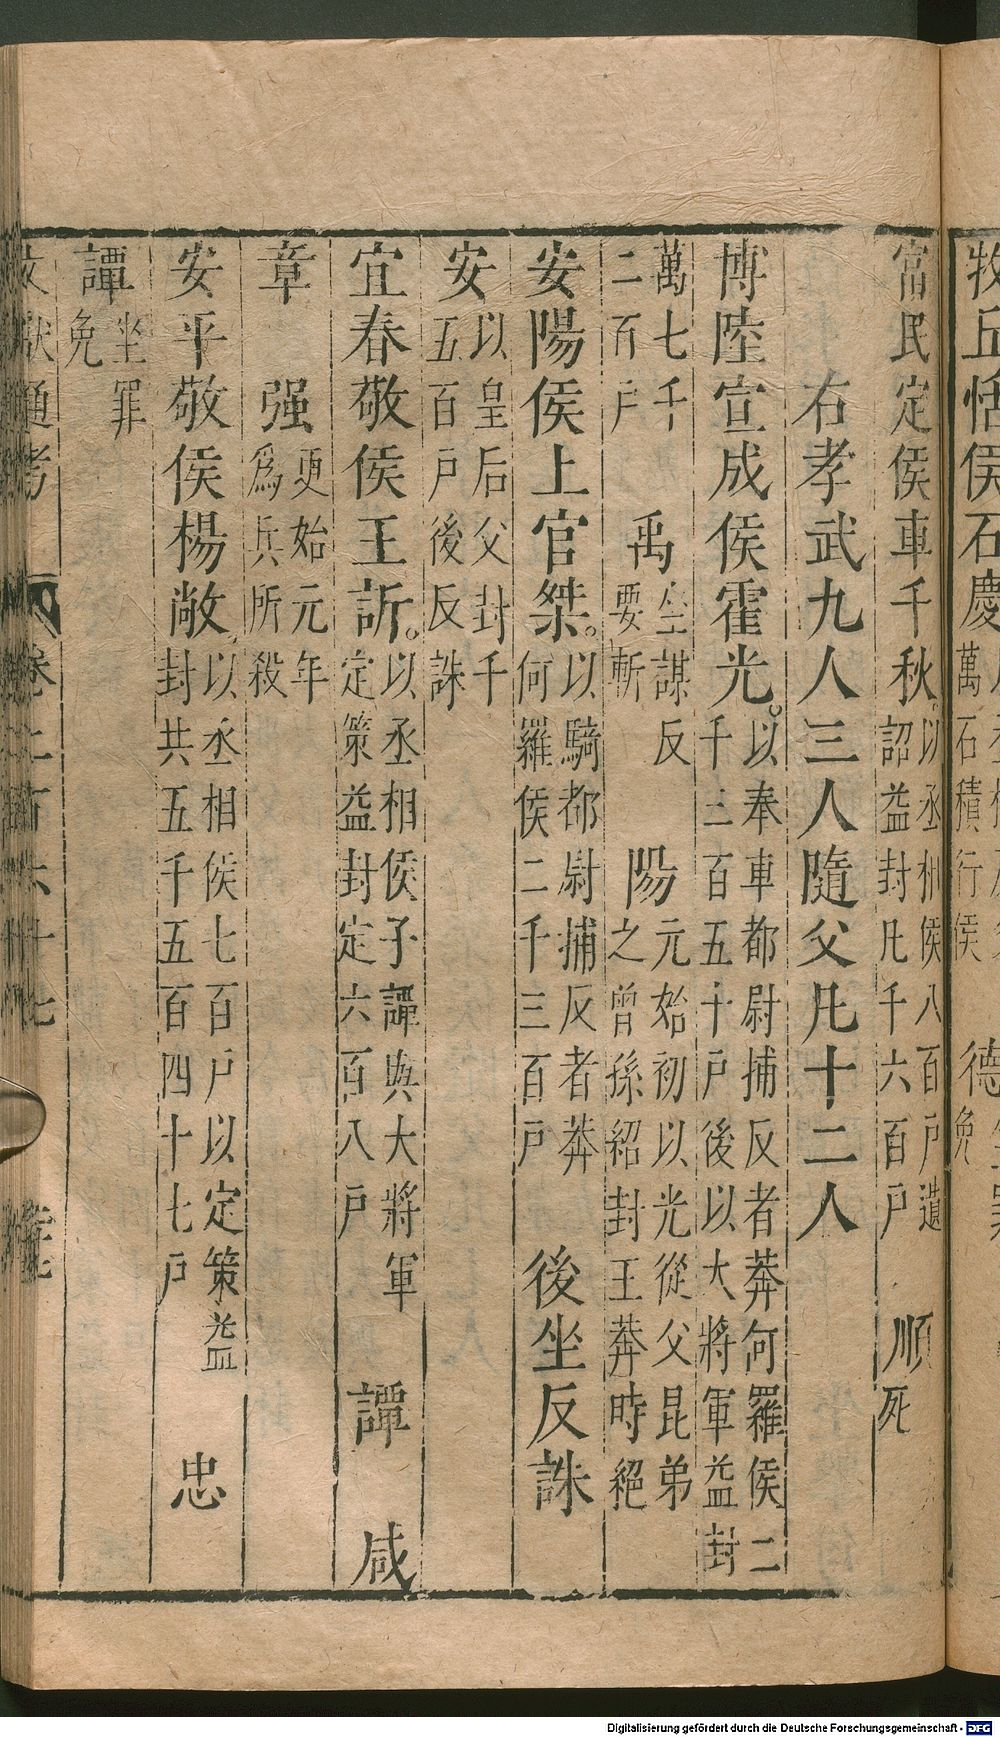 牧丘恬侯石慶 萬石積行侯 德 免
富民定侯車千秋 以丞相侯八百戶遺詔益封凡千六百戶 順 死
右孝武九人三人隨父凡十二人
博陸宣成侯霍光 以奉車都尉捕反者莽何羅侯二千三百五十戶後以大將軍益封
萬七千二百戶 禹 坐謀反要斬 陽 元始初以光從父昆弟之曾孫紹封王莽時絕
安陽侯上官桀 以騎都尉捕反者莽何羅侯二千三百戶 後坐反誅
安 以皇后父封千五百戶後反誅
宜春敬侯王訢 以丞相侯子譚與大將軍定策益封定六百八戶 譚 咸
章 强 更始元年爲兵所殺
安平敬侯楊敞 以丞相侯七百戶以定策益封共五千五百四十七戶 忠
譚 坐罪免
文獻通考 卷二百六十七
Digitalisierung gefördert durch die Deutsche Forschungsgemeinschaft - DFG